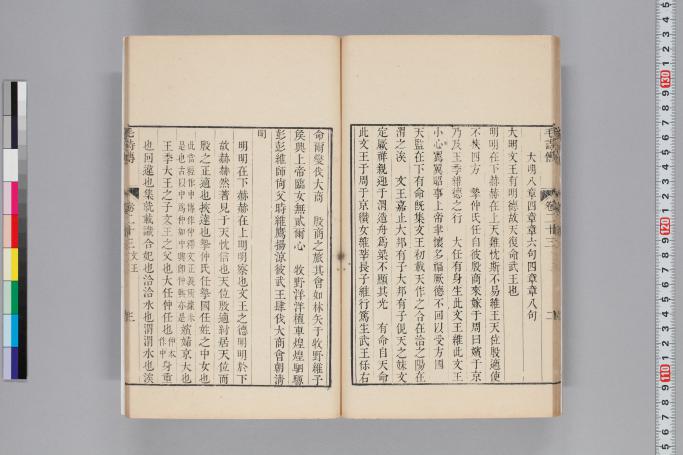 大明八章四章章六句四章章八句
大明文王有明德故天復命武王也
明明在下赫赫在上天難忱斯不易維王天位殷適使
不挾四方　摯仲氏任自彼殷商來嫁于周曰嬪于京
乃及王季維德之行　大任有身生此文王維此文王
小心翼翼昭事上帝聿懷多福厥德不回以受方國
天監在下有命旣集文王初載天作之合在洽之陽在
渭之涘　文王嘉止大邦有子大邦有子俔天之妹文
定厥祥親迎于渭造舟爲梁不顯其光　有命自天命
此文王于周于京纘女維莘長子維行篤生武王保右
命爾燮伐大商　殷商之旅其會如林矢于牧野維予
矦興上帝臨女無貳爾心　牧野洋洋檀車煌煌駟騵
彭彭維師尙父時維鷹揚涼彼武王肆伐大商會朝淸
明
明明在下赫赫在上明明察也文王之德明明於下
故赫赫然著見于天忱信也天位殷適紂居天位而
殷之正適也挾達也摯仲氏任摯國任姓之中女也
嬪婦京大也
王季大王之子文王之父也大任仲任也身重
也回違也集就載識合妃也洽洽水也渭渭水也涘
毛詩傳
卷二十三
文王
二